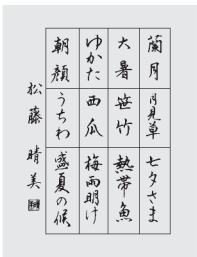 蘭月
月見草
七夕さま
大暑
笹竹
熱帯魚
ゆかた
西瓜
梅雨明け
朝顔
うちわ
盛夏の候
松藤晴美